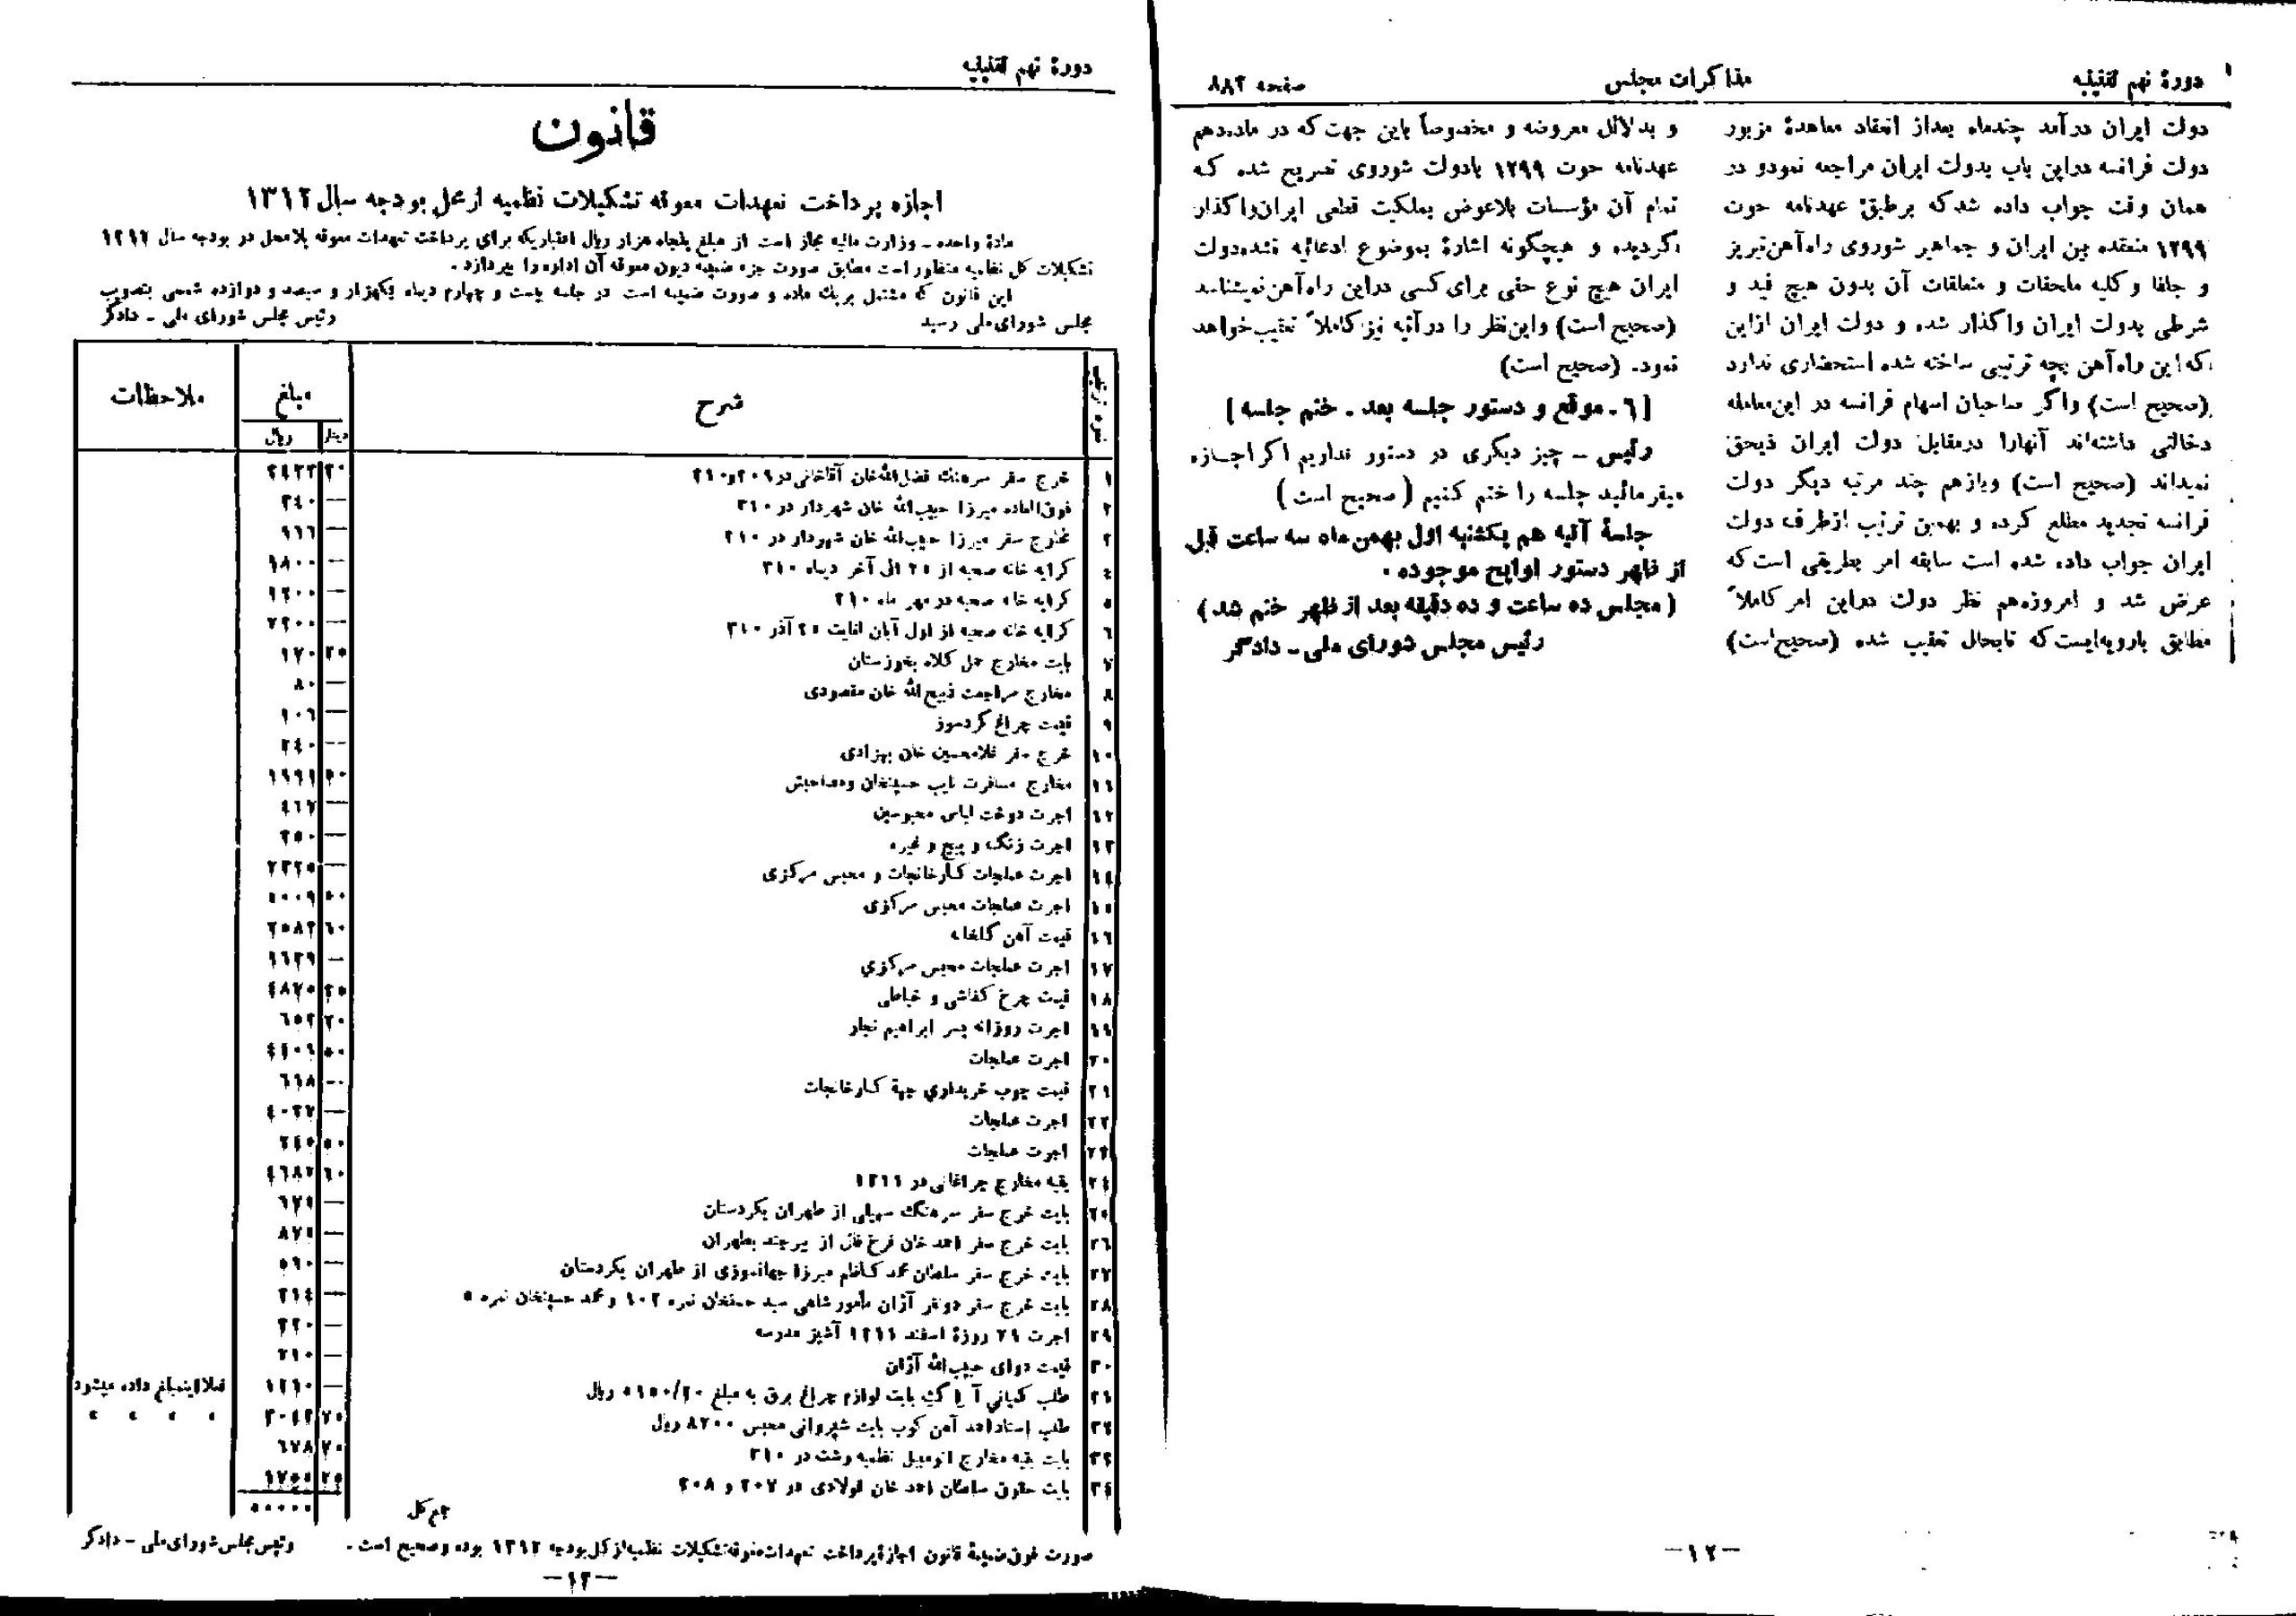 دورهٔ نهم تقنینیه
مذاکرات مجلس
صفحه ۸۸۲
دولت ایران درآمد چندماه بعداز انعقاد معاهدهٔ مزبور
دولت فرانسه دراین باب بدولت ایران مراجعه نمودو در
همان وقت جواب داده شدکه برطبق عهدنامه حوت
۱۲۹۹ منعقده بین ایران و جماهیر شوروی راه‌آهن‌تبریز
و جلفا وکلیه ملحقات و متعلقات آن بدون هیچ قید و
شرطی بدولت ایران واگذار شده و دولت ایران ازاین
که‌این راه‌آهن بچه ترتیبی ساخته شده استحضاری ندارد
(صحیح است) واگر صاحبان اسهام فرانسه در این‌معامله
دخالتی داشته‌اند آنهارا درمقابل دولت ایران ذیحق
نمیداند (صحیح است) وبازهم چند مرتبه دیگر دولت
فرانسه تجدید مطلع کرده و بهمین ترتیب ازطرف دولت
ایران جواب داده شده است سابقه امر بطریقی است‌که
عرض شد و امروزه‌هم نظر دولت دراین امرکاملاً
مطابق بارویه‌ایست‌که تابحال تعقیب شده (صحیح‌است)
و بدلائل معروضه و مخصوصاً باین جهت‌که در ماده‌دهم
عهدنامه حوت ۱۲۹۹ بادولت شوروی تصریح شده که
تمام آن مؤسسات بلاعوض بملکیت قطعی ایران‌واگذار
گردیده و هیچگونه اشارهٔ بموضوع ادعائیه نشده‌دولت
ایران هیچ نوع حقی برای‌کسی دراین راه‌آهن‌نمیشناسد
(صحیح است) واین‌نظر را درآتیه نیزکاملاً تعقیب‌خواهد
نمود. (صحیح است)
[٦ـ موقع و دستور جلسه بعد ـ ختم جلسه]
رئیس ـ چیز دیگری در دستور نداریم اگراجازه
میفرمائید جلسه را ختم کنیم (صحیح است)
جلسهٔ آتیه هم یکشنبه اول بهمن‌ماه سه ساعت قبل
از ظهر دستور لوایح موجوده.
(مجلس ده ساعت و ده دقیقه بعد از ظهر ختم شد)
رئیس مجلس شورای ملی ـ دادگر
ـ۱۲ـ
دورهٔ نهم تقنینیه
قانون
اجازه پرداخت تعهدات معوقه تشکیلات نظمیه ازمحل بودجه سال ۱۳۱۲
مادهٔ واحده ـ وزارت مالیه مجاز است از مبلغ پنجاه هزار ریال اعتباریکه برای پرداخت تعهدات معوقه بلامحل در بودجه سال ۱۳۱۲
تشکیلات کل نظمیه منظور است مطابق صورت جزء ضمیمه دیون معوقه آن اداره را بپردازد.
این قانون که مشتمل بریک ماده و صورت ضمیمه است در جلسه بیست و چهارم دیماه یکهزار و سیصد و دوازده شمسی بتصویب
مجلس شورای‌ملی رسید رئیس مجلس شورای ملی ـ دادگر
نمره ترتیب شرح مبلغ ملاحظات
دینار ریال
۱ خرج سفر سرهنگ فضل‌الله‌خان آقاخانی در ۳۰۹و۳۱۰
۲ فوق‌العاده میرزا حبیب‌الله خان شهردار در ۳۱۰ — ۲٤۰
۳ مخارج سفر میرزا حبیب‌الله خان شهردار در ۳۱۰ — ۹٦٦
٤ کرایه خانه صحیه از ۲۵ الی آخر دیماه ۳۱۰ — ۱۸۰۰
۵ کرایه خانه صحیه در مهر ماه ۳۱۰
٦ کرایه خانه صحیه از اول آبان لغایت ۲۵ آذر ۳۱۰
۷ بابت مخارج حمل کلاه بخوزستان ۲۵ ۱۷۰
۸ مخارج مراجعت ذبیح‌الله خان مقصودی — ۸۰
۹ قیمت چراغ گردسوز — ۱۰٦
۱۰ خرج سفر غلامحسین خان بهزادی — ۲٤۰
۱۱ مخارج مسافرت نایب حسینخان ومصاحبش
۱۲ اجرت دوخت لباس محبوسین — ٤٦۷
۱۳ اجرت زنگ و پیچ و غیره — ۲۵۰
۱٤ اجرت عملجات کارخانجات و محبس مرکزی
۱۵ اجرت عملجات محبس مرکزی ۵۰ ۵۰۰۹
۱٦ قیمت آهن گلخانه
۱۷ اجرت عملجات محبس مرکزی
۱۸ قیمت چرخ کفاشی و خیاطی
۱۹ اجرت روزانه پسر ابراهیم نجار
۲۰ اجرت عملجات
۲۱ قیمت چوب خریداری جهة کارخانجات
۲۲ اجرت عملجات
۲۳ اجرت عملجات
۲٤ بقیه مخارج چراغانی در ۱۳۱۱
۲۵ بابت خرج سفر سرهنگ سهیلی از طهران بکردستان
۲٦ بابت خرج سفر احمد خان فرخ فال از بیرجند بطهران
۲۷ بابت خرج سفر سلطان محمد کاظم میرزا جهانسوزی از طهران بکردستان — ۵٦۰
۲۸ بابت خرج سفر دونفر آژان مأمور شاهی سید حسنخان نمره ۱۰۲ و محمد حسینخان نمره ۵
۲۹ اجرت ۲۹ روزهٔ اسفند ۱۳۱۱ آشپز مدرسه
۳۰ قیمت دوای حبیب‌الله آژان — ۲۱۰
۳۱ طلب کمپانی آ ا گ بابت لوازم چراغ برق به مبلغ ریال فعلا اینمبلغ داده میشود
۳۲ طلب استاداحمد آهن کوب بابت شیروانی محبس ۸۲۰۰ ریال » » » »
۳۳ بابت بقیه مخارج اتومبیل نظمیه رشت در ۳۱۰ ۷۰ ٦۷۸
۳٤ بابت حقوق سلطان احمد خان فولادی در ۳۰۷ و ۳۰۸
جمع کل ۵۰۰۰۰
صورت فوق‌ضمیمهٔ قانون اجازهٔ‌پرداخت تعهدات‌معوقه‌تشکیلات نظمیه‌ازکل‌بودجه ۱۳۱۲ بوده وصحیح است. رئیس‌مجلس‌شورای‌ملی ـ دادگر
ـ۱۳ـ